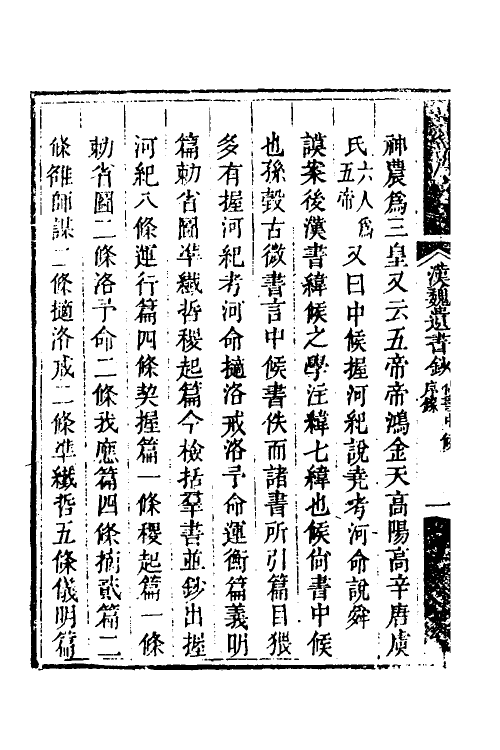 漢魏遺書鈔
尚書中候
序錄
一
神農爲三皇又云五帝帝鴻金天高陽高辛唐虞
氏六人爲五帝又曰中候握河紀說堯考河命說舜
謨案後漢書緯候之學注緯七緯也候尚書中候
也孫瑴古微書言中候書佚而諸書所引篇目猥
多有握河紀考河命擿洛戒洛予命運衡篇義明
篇勅省圖準纖哲稷起篇今檢括羣書並鈔出握
河紀八條運行篇四條契握篇一條稷起篇一條
勅省圖二條洛予命二條我應篇四條摘貳篇二
條雒師謀二條擿洛戒二條準纖哲五條儀明篇